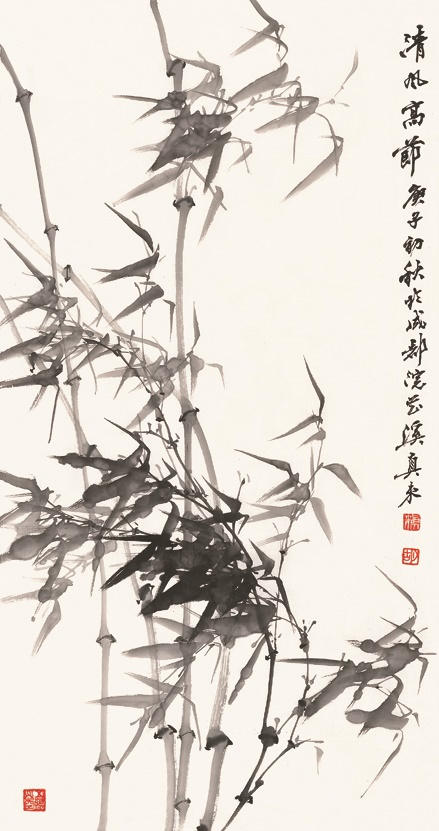 清風高節庚子初秋於成都浣花溪真東